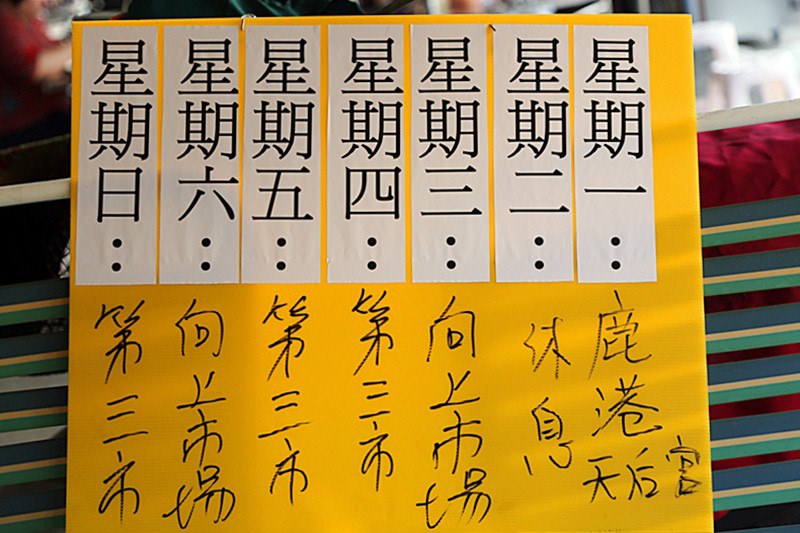 星期一：鹿港天后宮
星期二：休息
星期三：向上市場
星期四：第三市
星期五：第三市
星期六：向上市場
星期日：第三市